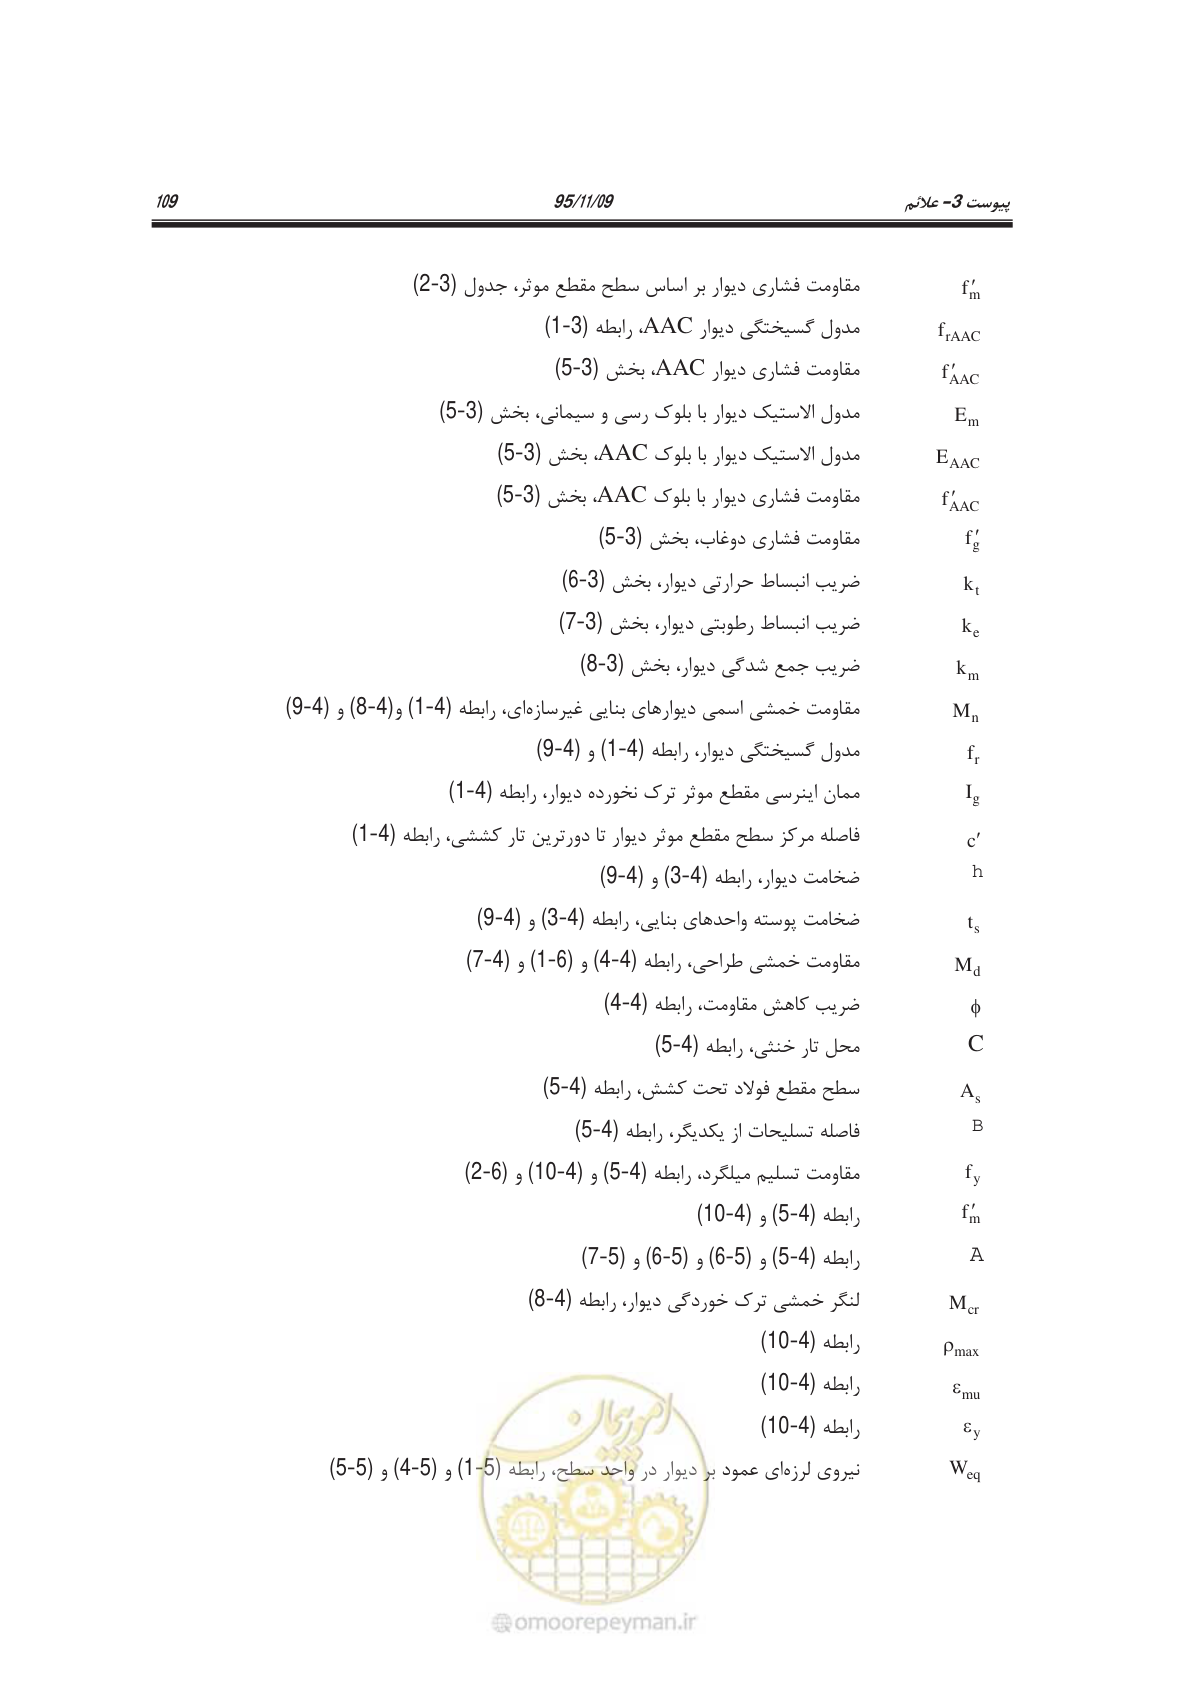 پیوست 3- علائم 95/11/09 109
f′m مقاومت فشاری دیوار بر اساس سطح مقطع موثر، جدول (3-2)
frAAC مدول گسیختگی دیوار AAC، رابطه (3-1)
f′AAC مقاومت فشاری دیوار AAC، بخش (3-5)
Em مدول الاستیک دیوار با بلوک رسی و سیمانی، بخش (3-5)
EAAC مدول الاستیک دیوار با بلوک AAC، بخش (3-5)
f′AAC مقاومت فشاری دیوار با بلوک AAC، بخش (3-5)
f′g مقاومت فشاری دوغاب، بخش (3-5)
kt ضریب انبساط حرارتی دیوار، بخش (3-6)
ke ضریب انبساط رطوبتی دیوار، بخش (3-7)
km ضریب جمع شدگی دیوار، بخش (3-8)
Mn مقاومت خمشی اسمی دیوارهای بنایی غیرسازه‌ای، رابطه (4-1) و(4-8) و (4-9)
fr مدول گسیختگی دیوار، رابطه (4-1) و (4-9)
Ig ممان اینرسی مقطع موثر ترک نخورده دیوار، رابطه (4-1)
c′ فاصله مرکز سطح مقطع موثر دیوار تا دورترین تار کششی، رابطه (4-1)
h ضخامت دیوار، رابطه (4-3) و (4-9)
ts ضخامت پوسته واحدهای بنایی، رابطه (4-3) و (4-9)
Md مقاومت خمشی طراحی، رابطه (4-4) و (6-1) و (4-7)
ϕ ضریب کاهش مقاومت، رابطه (4-4)
C محل تار خنثی، رابطه (4-5)
As سطح مقطع فولاد تحت کشش، رابطه (4-5)
B فاصله تسلیحات از یکدیگر، رابطه (4-5)
fy مقاومت تسلیم میلگرد، رابطه (4-5) و (4-10) و (6-2)
f′m رابطه (4-5) و (4-10)
A رابطه (4-5) و (5-6) و (5-6) و (5-7)
Mcr لنگر خمشی ترک خوردگی دیوار، رابطه (4-8)
ρmax رابطه (4-10)
εmu رابطه (4-10)
εy رابطه (4-10)
Weq نیروی لرزه‌ای عمود بر دیوار در واحد سطح، رابطه (5-1) و (5-4) و (5-5)
امور پیمان
@omoorepeyman.ir